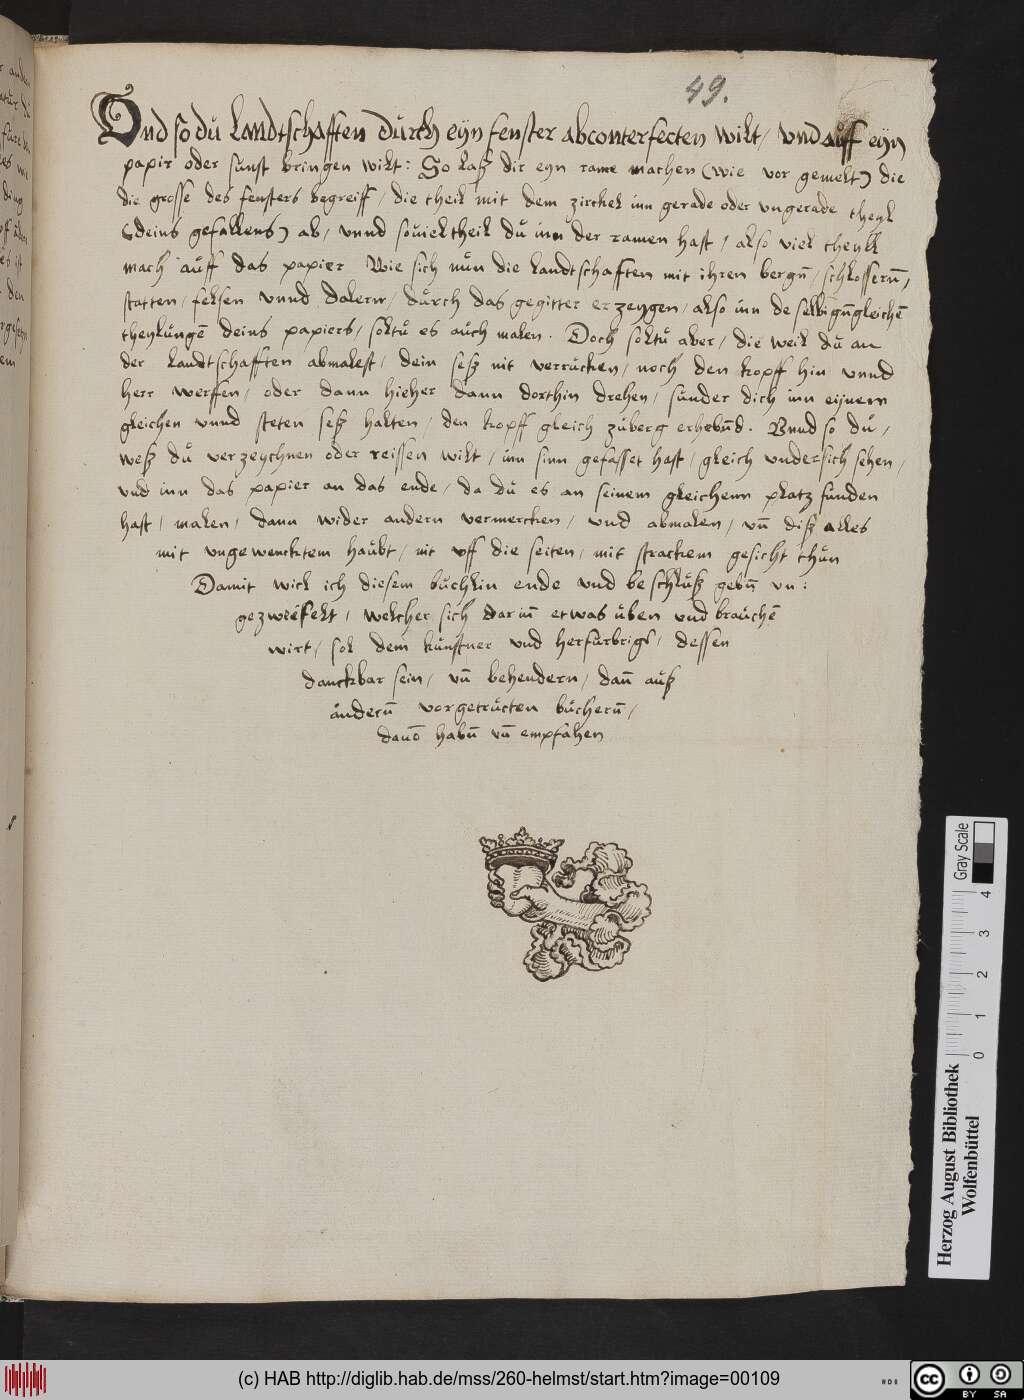 49.
Vnd so du landtschafften durch eyn fenster abconterfecten wilt, vnd auff eyn
papir oder sunst bringen wilt: So laß dir eyn rame machen (wie vor gemelt) die
die grosse des fensters begreiff, die theil mit dem zirckel inn gerade oder vngerade theyl
(deins gefallens) ab, vnnd souiel theil du inn der ramen hast, also viel theyll
mach auff das papier Wie sich nun die landtschafften mit ihren bergn̄, schlossern̄,
statten, felsen vnnd dalern, durch das gegitter erzeygen, also inn de selbign̄ gleichē
theylungē deins papiers, soltu es auch malen. Doch soltu aber, die weil du an
der landtschafften abmalest, dein seß nit verrucken, noch den kopff hin vnnd
herr werffen, oder dann hieher dann dorthin drehen, sunder dich inn eijnem
gleichen vnnd steten seß halten, den kopff gleich zuberg erhebn̄d. Vnnd so du,
weß du verzeychnen oder reissen wilt, inn sinn gefasset hast, gleich vndersich sehen,
vnd inn das papier an das ende, da du es an seinem gleichenn platz funden
hast, malen, dann wider andern vermercken, vnd abmalen, vn̄ diß alles
mit vngewencktem haubt, nit vff die seiten, mit strackem gesicht thun
Damit will ich diesem buchlin ende vnd beschluß gebn̄ vn:
gezwiefelt, welcher sich darin̄ etwas uben vnd brauchē
wirt, sol dem kunstner vnd herfurbrigs, dessen
danckbar sein, vn̄ behendern, dan̄ auß
andern̄ vorgetructen buchern̄,
dauō habn̄ vn̄ empfahen
Gray Scale
0 1 2 3 4
Herzog August Bibliothek
Wolfenbüttel
(c) HAB http://diglib.hab.de/mss/260-helmst/start.htm?image=00109
HAB
cc BY SA